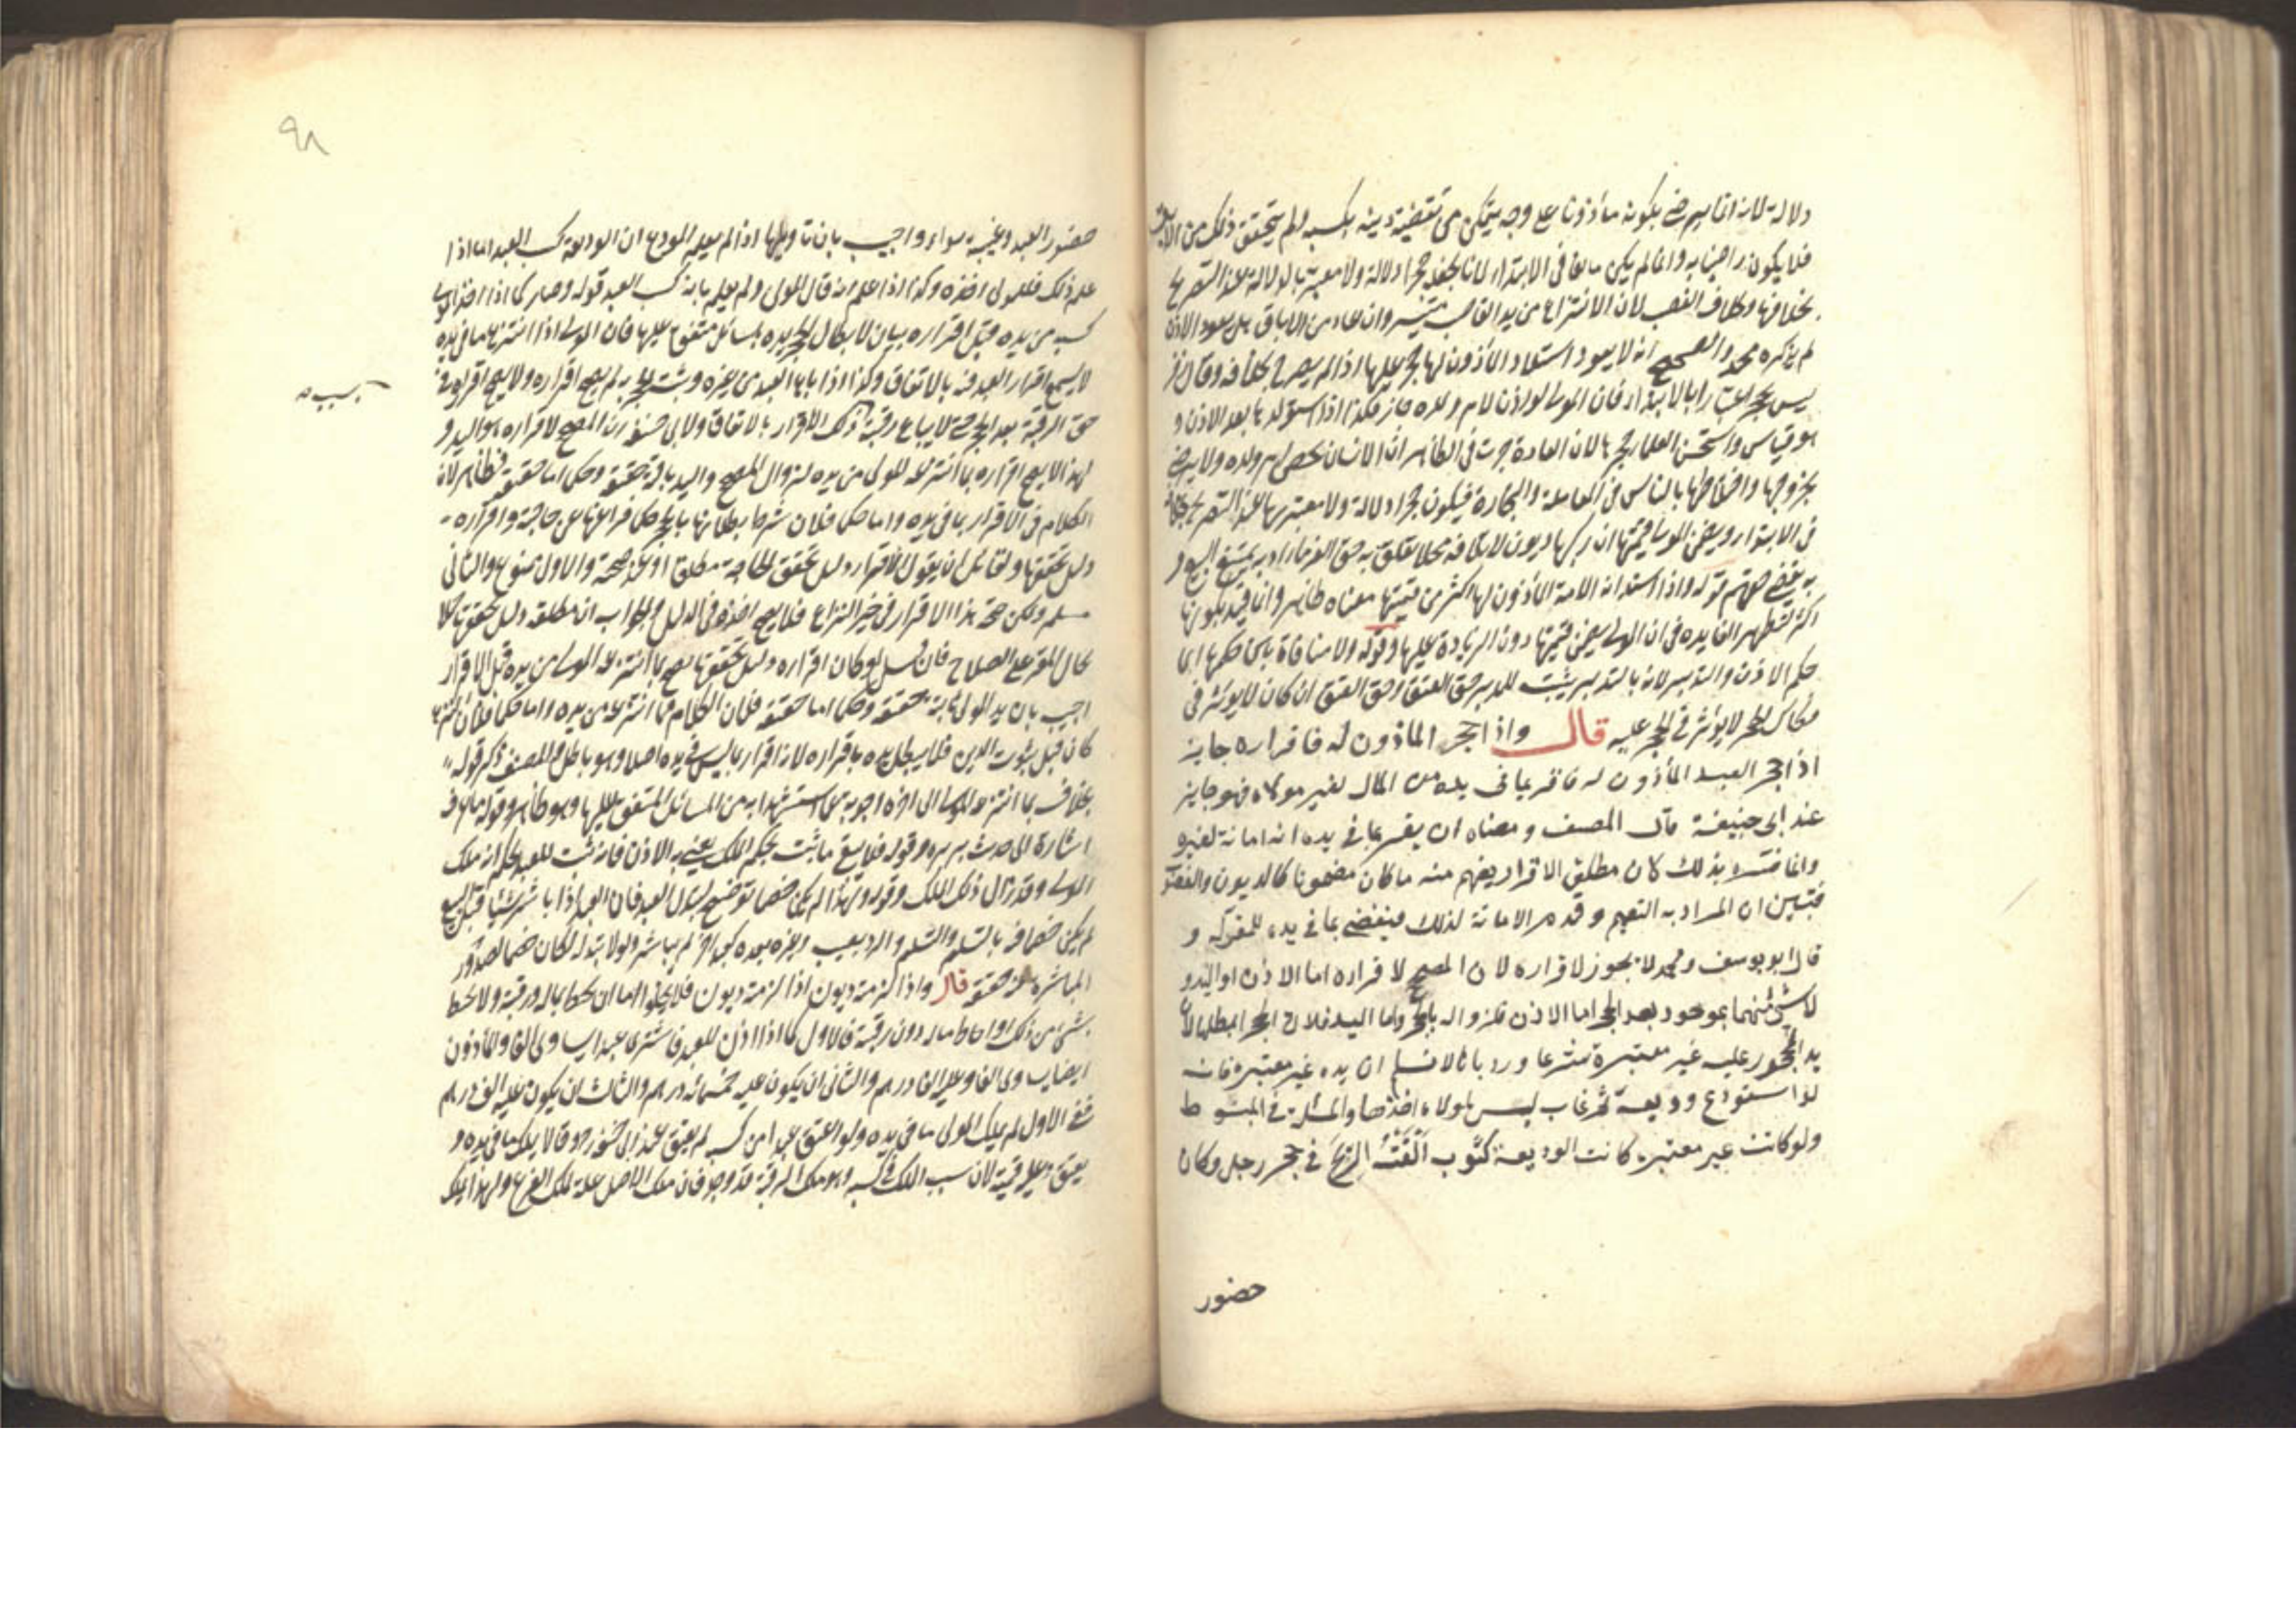 دلالة لانه انما يرضى بكونه مأذونا على وجه يتمكن من تقضية دينه بكسبه ولم يتحقق ذلك من الابق
فلا يكون راضيا به وانما لم يكن مانعا في الابتداء لانا نجعله حجرا دلالة ولا معتبر بالدلالة عند التصريح
بخلافها وبخلاف الغصب لان الانتزاع من يد الغاصب متيسر وان عاد من الاباق هل يعود الاذن
لم يذكره محمد والصحيح انه لا يعود استيلاد المأذون لها حجر عليها اذا لم يصرح بخلافه وقال زفر
ليس بحجر اعتبارا بالابتداء فان المولى لو اذن لام ولده جاز فكذا اذا استولدها بعد الاذن و
هو قياس واستحسن العلماء حجرها لان العادة جرت في الظاهر ان الانسان يحصن ام ولده ولا يرضى
بخروجها واختلاطها بالناس في المعاملة والتجارة فيكون حجرا دلالة ولا معتبر بها عند التصريح بخلافه
في الابتداء ويضمن المولى قيمتها ان ركبها ديون لاتلافه محلا تعلق به حق الغرماء اذ به يمتنع البيع و
به يقضى حقهم قوله واذا استدانت الامة المأذون لها اكثر من قيمتها معناه ظاهر وانما قيد بكونها
اكثر لتظهر الفايده في ان المولى يضمن قيمتها دون الزيادة عليها وقوله ولا منافاة بين حكمها اي
حكم الاذن والتدبير لانه بالتدبير يثبت للمدبر حق العتق وحق العتق ان كان لا يؤثر في
فكاك الحجر لا يؤثر في الحجر عليه قال واذا حجر المأذون له فاقراره جايز
اذا حجر العبد المأذون له فاقر بما في يده من المال لغير مولاه فهو جايز
عند ابي حنيفة قال المصنف ومعناه ان يقر بما في يده انه امانة لغيره
وانما فسره بذلك لان مطلق الاقرار يفهم منه ما كان مضمونا كالديون والغصوب
فتبين ان المراد به التعميم وقدم الامانة لذلك فيقضى بما في يده للمقر له و
قال ابو يوسف ومحمد لا يجوز لاقراره لان المصحح لاقراره اما الاذن او اليد و
لا شيء منهما بموجود بعد الحجر اما الاذن فلزواله بالحجر واما اليد فلان الحجر ابطلها لان
يد المحجور عليه غير معتبرة شرعا ورد بانا لا نسلم ان يده غير معتبرة فانه
لو استودع وديعة ثم غاب ليس لمولاه اخذها والمسئلة في المبسوط
ولو كانت غير معتبره كانت الوديعة كثوب القته الريح في حجر رجل وكان
حضور
٩٨
حضور العبد وغيبته سواء واجيب بان تأويلها اذا لم يعلم المودع ان الوديعة كسب العبد اما اذا
علم ذلك فللمولى اخذه وكذا اذا علم انه مال المولى ولم يعلم بانه كسب العبد قوله وصار كما اذا اخذ المولى
كسبه من يده قبل اقراره بيان لابطال الحجر يده بمسائل متفق عليها فان المولى اذا انتزع ما في يده
لا يسمع اقرار العبد فيه بالاتفاق وكذا اذا باع العبد من غيره وثبت الحجر به لم يصح اقراره ولا يصح اقراره في
حق الرقبة بعد الحجر حتى لا يباع رقبته بذلك الاقرار بالاتفاق ولابي حنيفة ان المصحح لاقراره هو اليد و
لهذا لا يصح اقراره بما انتزعه المولى من يده لزوال المصحح واليد باقية حقيقة وحكما اما حقيقة فظاهر لان
الكلام في الاقرار بما في يده واما حكما فلان شرط بطلانها بالحجر حكما فراغها عن حاجته واقراره
دليل تحققها ولقائل ان يقول الاقرار دليل تحقق الحاجة مطلقا او عند صحته والاول ممنوع والثاني
مسلم ولكن صحة هذا الاقرار في حيز النزاع فلا يصح اخذه في الدليل والجواب ان مطلقه دليل تحققها حملا
لحال المقر على الصلاح فان قيل لو كان اقراره دليل تحققها لصح بما انتزعه المولى من يده قبل الاقرار
اجيب بان يد المولى ثابتة حقيقة وحكما اما حقيقة فلان الكلام فيما انتزعه من يده واما حكما فلان انتزاعه
كان قبل ثبوت الدين فلا يبطل يده باقراره لانه اقرار بما ليس في يده اصلا وهو باطل والمصنف ذكر قوله
بخلاف ما انتزعه المولى الى اخره اجوبة عما استشهدا به من المسائل المتفق عليها وهو ظاهر وقوله ما عرف
اشارة الى حديث بريرة وقوله فلا يبقى ما ثبت بحكم الملك يعني به الاذن فانه ثبت للعبد بحكم انه ملك
المولى وقد زال ذلك الملك وقوله ولهذا لم يكن خصما توضيح لتبدل العبد فان العبد اذا باشر شيئا قبل البيع
لم يكن خصما فيه بالتسليم والتسلم والرد بعيب وغيره بعده كعبد اخر لم يباشره ولولا تبدله لكان خصما لصدور
المباشرة عنه حقيقة قال واذا لزمته ديون اذا لزمته ديون فلا يخلو اما ان تحيط بماله ورقبته ولا تحيط
بشيء من ذلك او احاط بماله دون رقبته فالاول كما اذا اذن للعبد فاشترى عبدا يساوي الفا والمأذون
ايضا يساوي الفا وعليه الفا درهم والثاني ان يكون عليه خمسمائة درهم والثالث ان يكون عليه الف درهم
ففي الاول لم يملك المولى ما في يده ولو اعتق عبدا من كسبه لم يعتق عند ابي حنيفة وقالا يملك ما في يده و
يعتق وعليه قيمته لان سبب الملك في كسبه وهو ملك الرقبة قد وجد فان ملك الاصل علة ملك الفرع ولهذا يملك